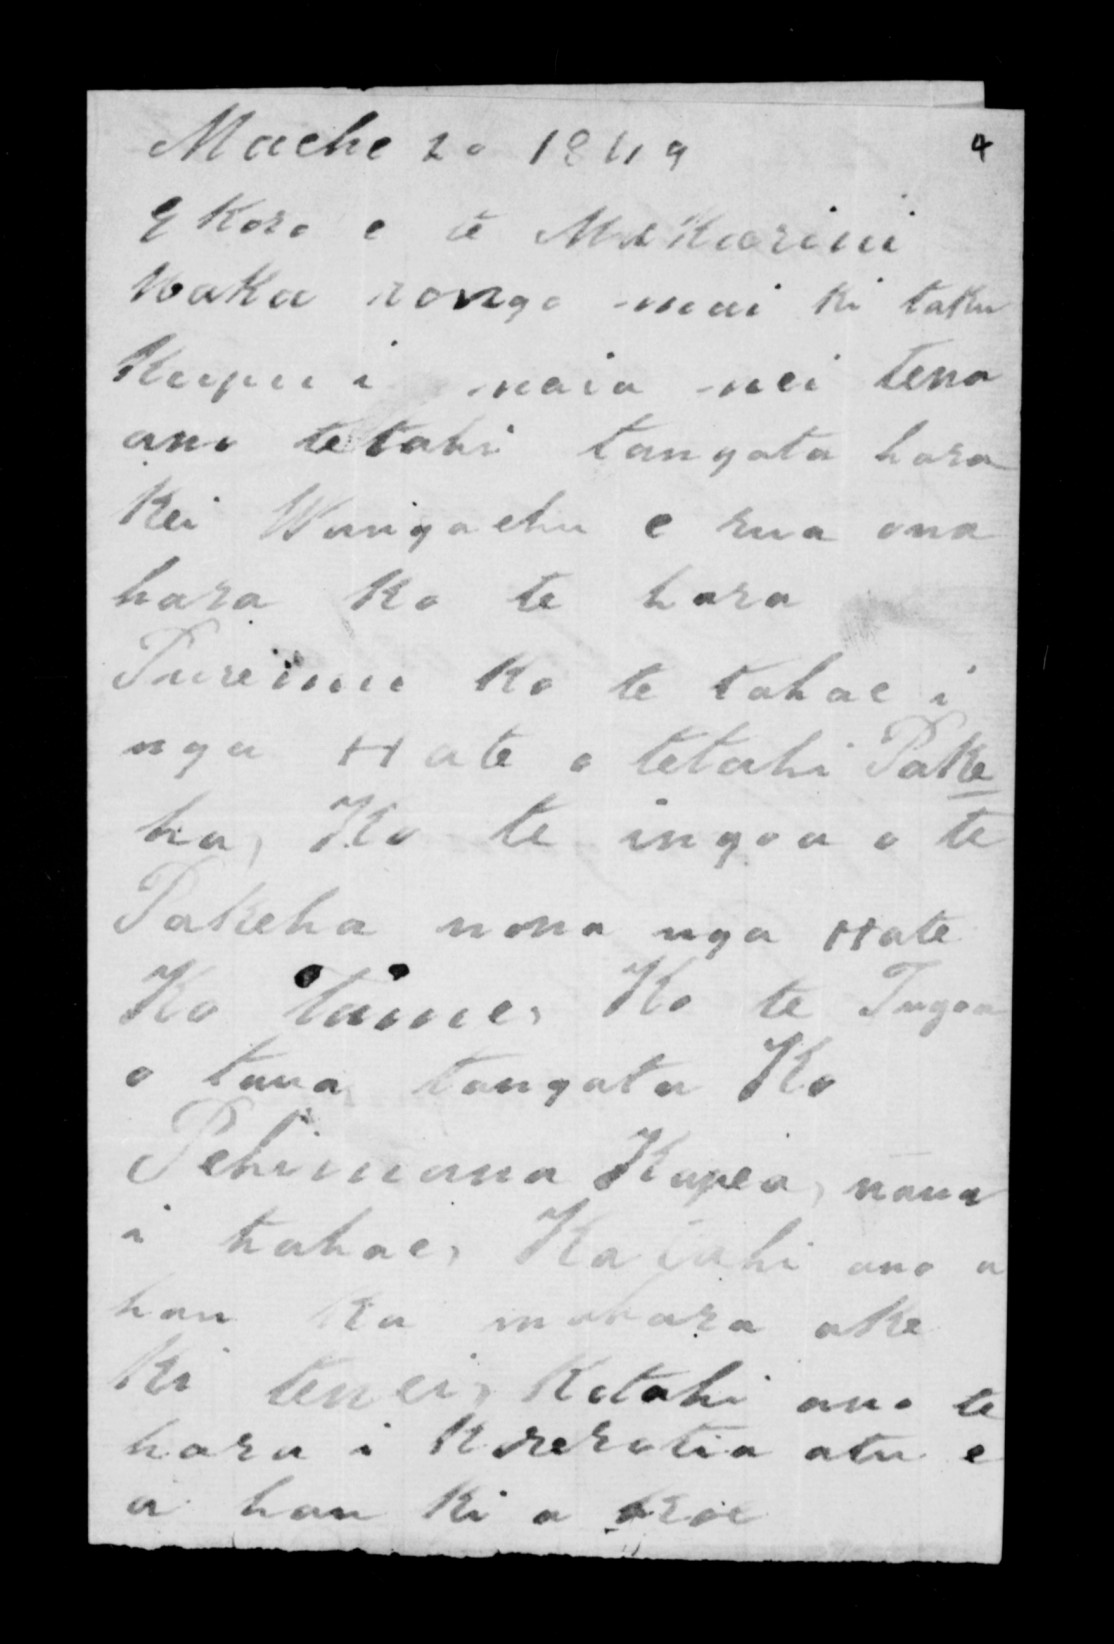 Maehe 20 1849
4
E Koro e te Makarini
Waka rongo mai ki taku
Kupu i naia nei tena
ano tetahi tangata hara
Kei Wangaehu e rua ona
hara Ko te hara
Pureimu Ko te tahae i
nga Hate o tetahi Pake
ha, Ko te ingoa o te
Pakeha nona nga Hate
Ko Taime, Ko te Ingoa
o taua tangata Ko
Pehimana Kapea, nana
i tahae, Ka tahi ano a
hau ka mahara ake
Ki tenei, Kotahi ano te
hara i Korerotia atu e
a hau Ki a Koe